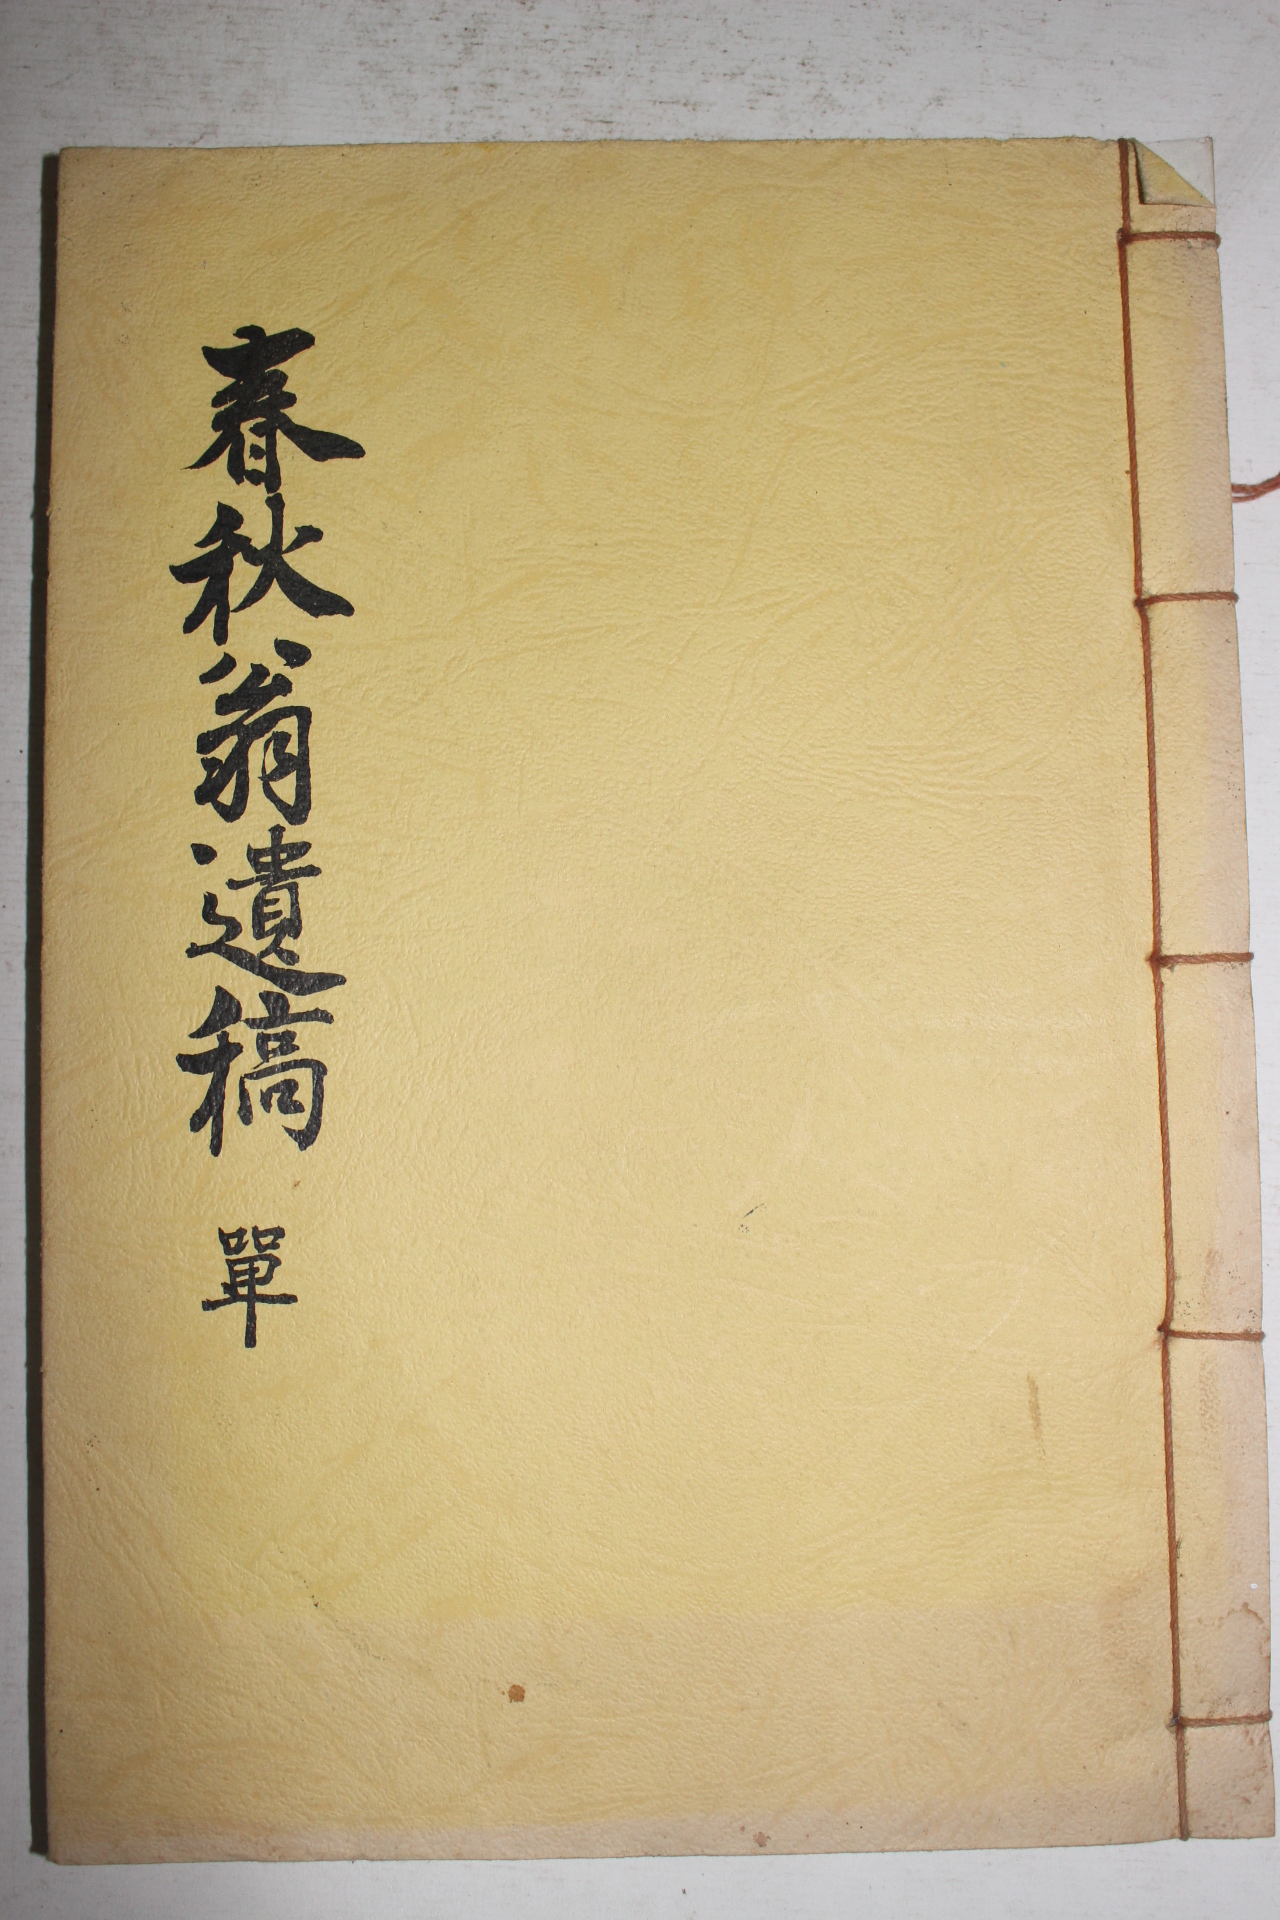 春秋翁遺稿 單